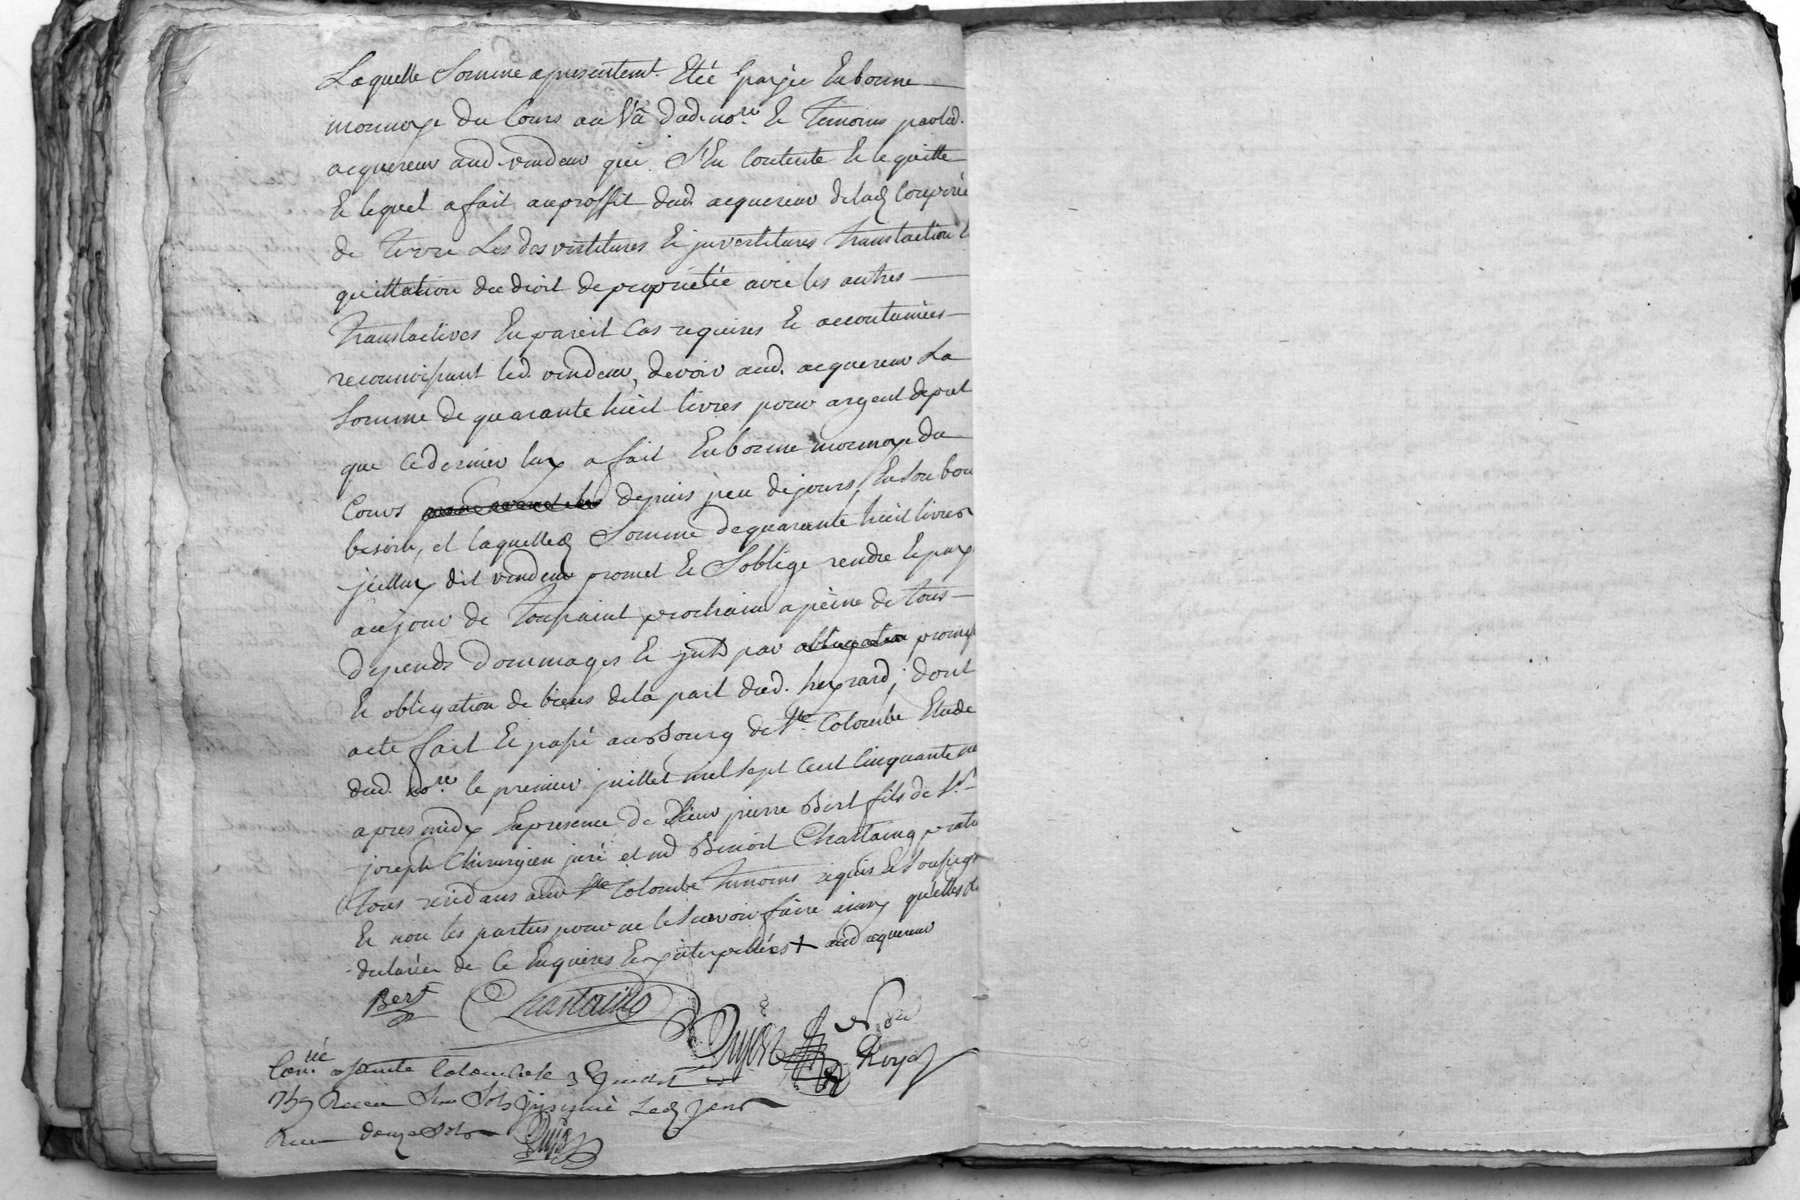 Laquelle Somme apresentemt. Eté payée En bonne
monnoye du Cours au Vû dud. nore. Et Temoins par led.
acquereur aud. vendeur qui S'En Contente Et le quitte
Et lequel a fait au proffit dud. acquereur de lad. Coupée
de Terre Les desvestitures Et jnvestitures Translation Et
quittation du droit de proprietée avec les autres
Translatives En pareil Cas requises Et accoutumées
reconnoissant led. vendeur, devoir aud. acquereur La
Somme de quarante huit livres pour argent de pret
que Ce dernier luy a fait En bonne monnoye du
Cours depuis peu de jours, En Son bon
besoin, et laquelle d. Somme de quarante huit livres
jcelluy dit vendeur promet Et S'oblige rendre Et payer
au jour de Toussaint prochain a peine de tous
depends dommages Et jnts. par promesse
Et obligation de biens de la part dud. heyrard, dont
acte fait Et passé au Bourg de Ste. Colombe Etude
dud. nore. le premier juillet mil sept Cent Cinquante
apres midy En presence de Sieur pierre Bert fils de Sr.
joseph Chirurgien juré et md. Benoit Chastaing
tous residans aud. Ste. Colombe Temoins requis Et Soussignés
Et non les parties pour ne le Scavoir faire ainsy qu'elles ont
declarées de Ce Enquises Et jnterpellées + aud. acquereur
Bert Chastaing
Dujast nore Royal
Conllé a Sainte Colombe le juillet
Receu Six Sols Jnsinué Led. jour
Receu douze Sols Dujast